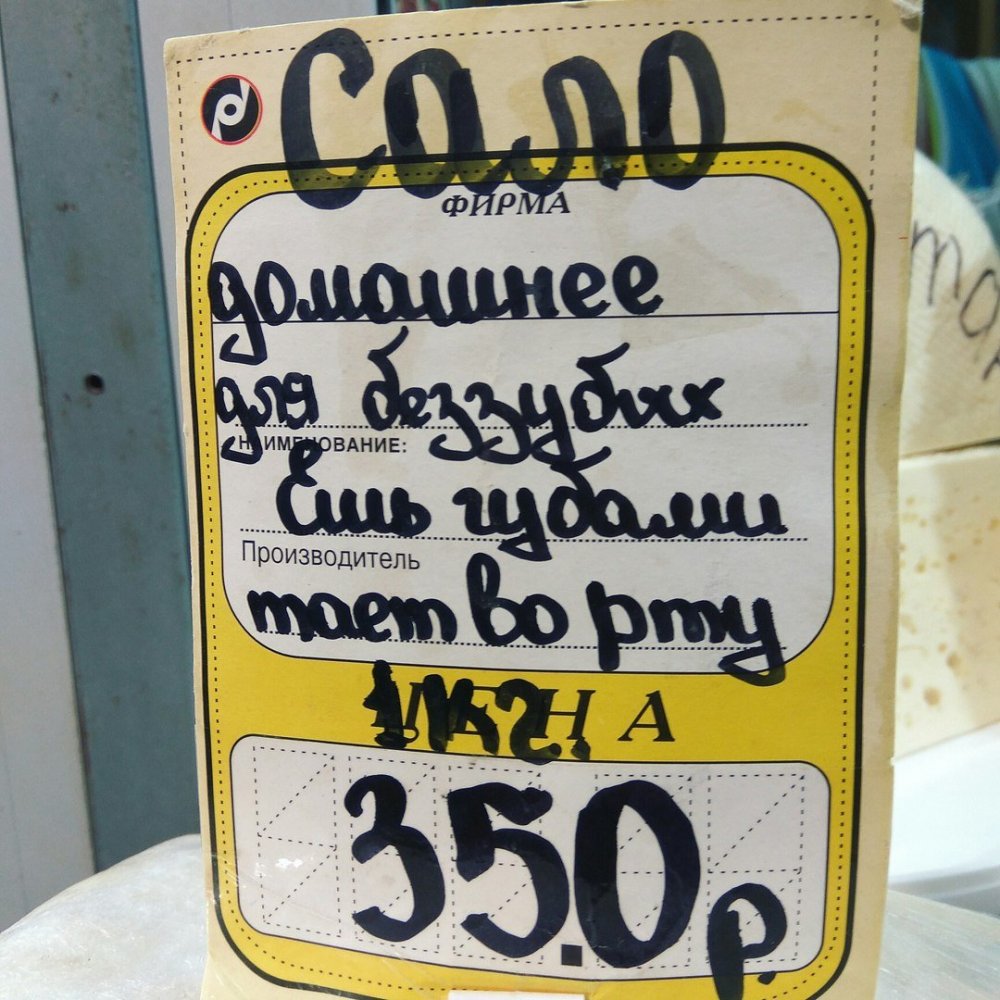 Сало
ФИРМА
домашнее
для беззубых
НАИМЕНОВАНИЕ:
Ешь губами
Производитель
тает во рту
ЦЕНА
1 кг.
350р.